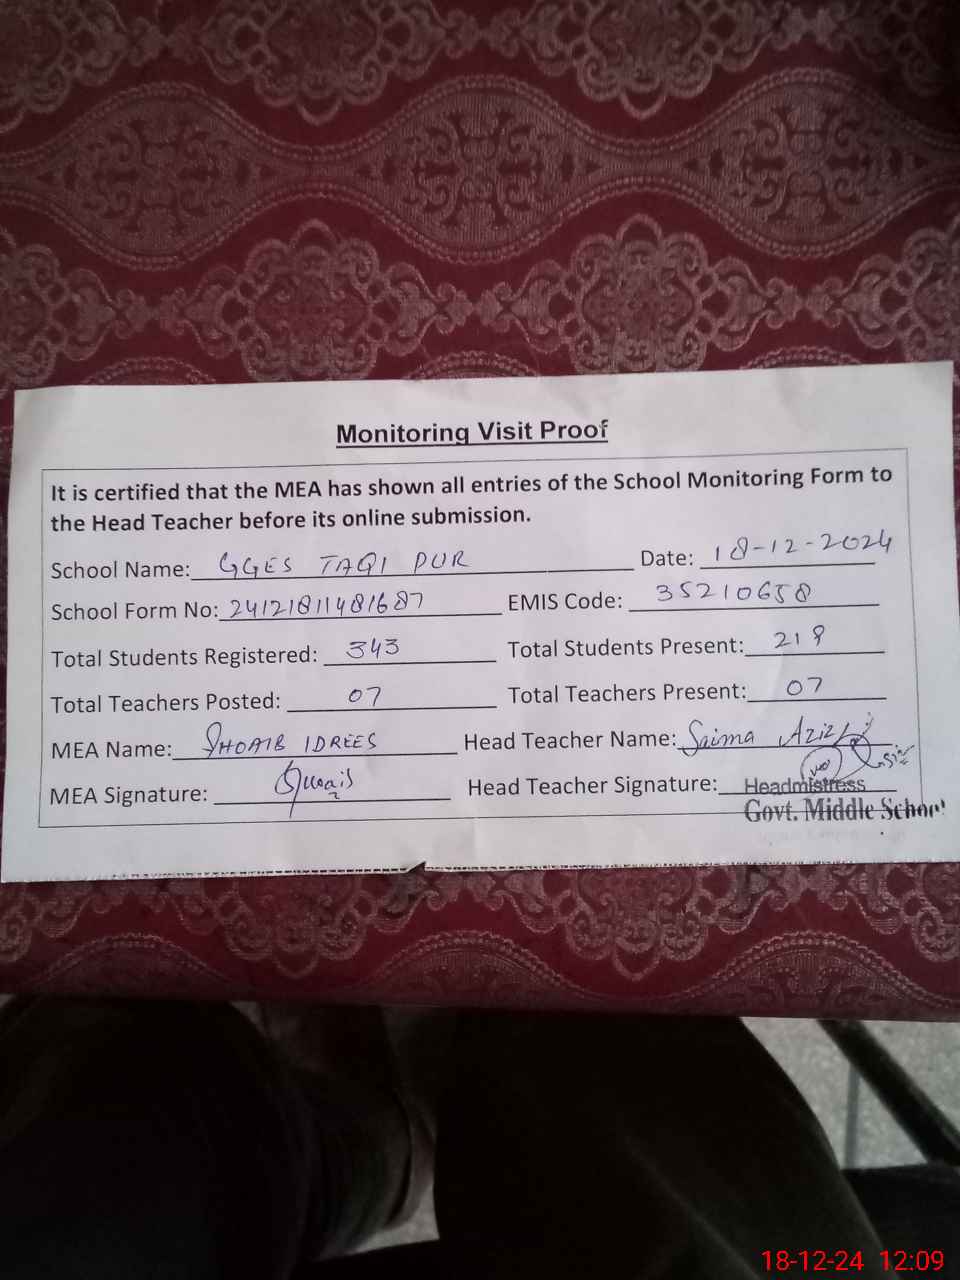 Monitoring Visit Proof
It is certified that the MEA has shown all entries of the School Monitoring Form to
the Head Teacher before its online submission.
School Name: GGES TAQI PUR Date: 18-12-2024
School Form No: 24121811481687 EMIS Code: 35210658
Total Students Registered: 343 Total Students Present: 218
Total Teachers Posted: 07 Total Teachers Present: 07
MEA Name: SHOAIB IDREES Head Teacher Name: Saima Aziz
MEA Signature: Head Teacher Signature:
Headmistress
Govt. Middle School
18-12-24 12:09